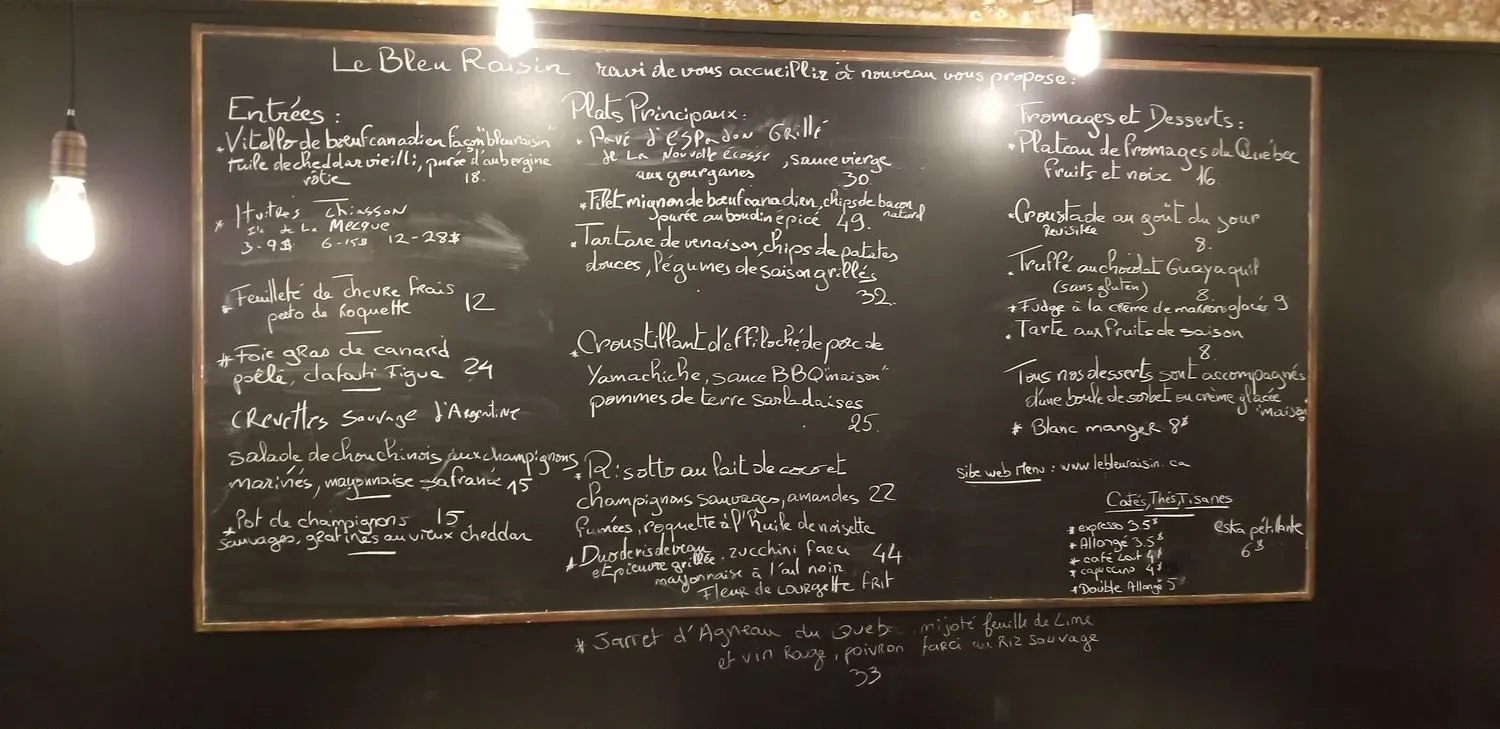 Le Bleu Raisin ravi de vous accueillir à nouveau vous propose:
Entrées :
* Vitello de bœuf canadien façon "bleu raisin"
tuile de cheddar vieilli, purée d'aubergine
rôtie 18.
* Huîtres Chiasson
Île de La Mecque
3-9$ 6-15$ 12-28$
* Feuilleté de chèvre frais
pesto de Roquette 12
* Foie gras de canard
poêlé, clafouti Figue 24
Crevettes Sauvage d'Argentine
salade de chou chinois aux champignons
marinés, mayonnaise safranée 15
* Pot de champignons 15
sauvages, gratinés au vieux cheddar
Plats Principaux :
* Pavé d'espadon Grillé
de La Nouvelle écosse, sauce vierge
aux gourganes 30.
* Filet mignon de bœuf canadien, chips de bacon
naturel
purée au boudin épicé 49.
* Tartare de venaison, chips de patates
douces, légumes de saison grillés
32.
* Croustillant d'effiloché de porc de
Yamachiche, sauce BBQ "maison"
pommes de terre sarladaises
25.
* Risotto au lait de coco et
champignons sauvages, amandes 22
fumées, roquette à l'huile de noisette
* Duo de ris de veau, zucchini farci 44
et pieuvre grillée
mayonnaise à l'ail noir
Fleur de courgette frit
* Jarret d'Agneau du Quebec, mijoté feuille de Lime
et vin Rouge, poivron farci au Riz Sauvage
33
Fromages et Desserts :
* Plateau de fromages du Québec
fruits et noix 16.
* Croustade au goût du jour
Revisitée 8.
* Truffé au chocolat Guayaquil
(sans gluten) 8.
* Fudge à la crème de marron glacés 9
* Tarte aux fruits de saison
8.
Tous nos desserts sont accompagnés
d'une boule de sorbet ou crème glacée
"maison"
* Blanc manger 8$
site web Menu : www.lebleuraisin.ca
Cafés, Thés, Tisanes
* expresso 3.5$
* Allongé 3.5$
* café Lait 4$
* capuccino 4$
* Double Allongé 5$
eska pétillante
6$